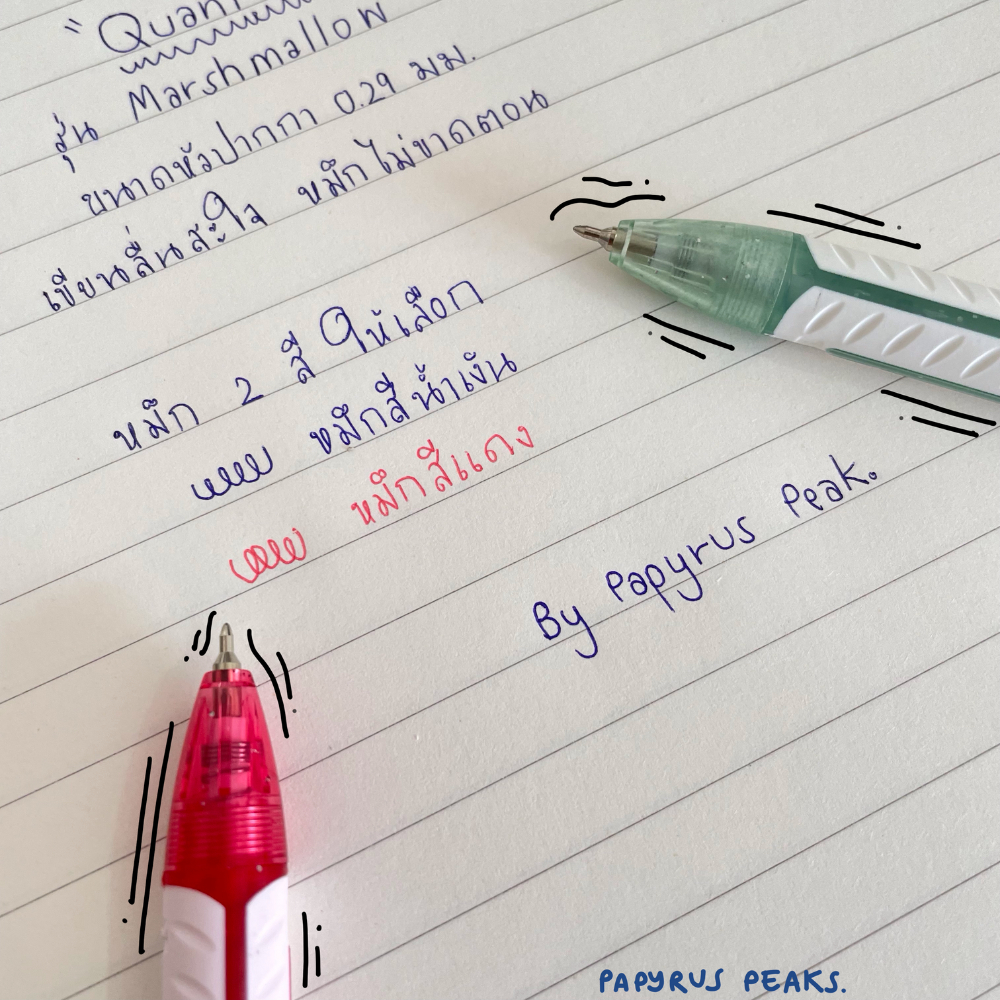 " Quant
รุ่น Marshmallow
ขนาดหัวปากกา 0.29 มม.
เขียนลื่นสะใจ หมึกไม่ขาดตอน
หมึก 2 สี ให้เลือก
หมึกสีน้ำเงิน
หมึกสีแดง
By Papyrus Peak.
PAPYRUS PEAKS.